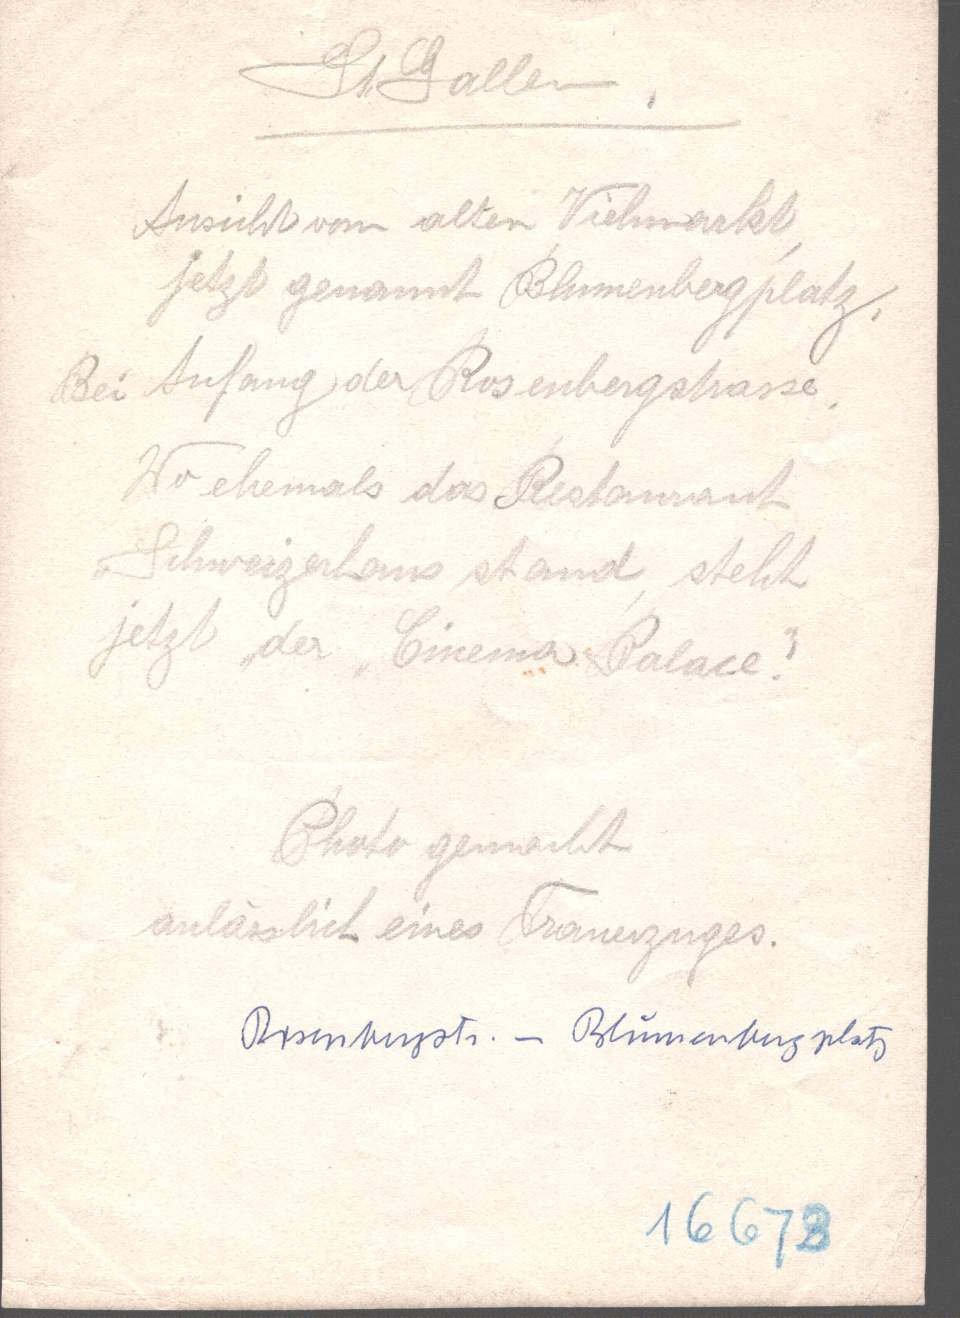 St. Gallen.
Ansicht vom alten Viehmarkt,
jetzt genannt Blumenbergplatz,
Bei Anfang der Rosenbergstrasse.
Wo ehemals das Restaurant
„Schweizerhaus stand, steht
jetzt „der „Cinema Palace".
Photo gemacht
anlässlich eines Trauerzuges.
Rosenbergstr. – Blumenbergplatz
16673